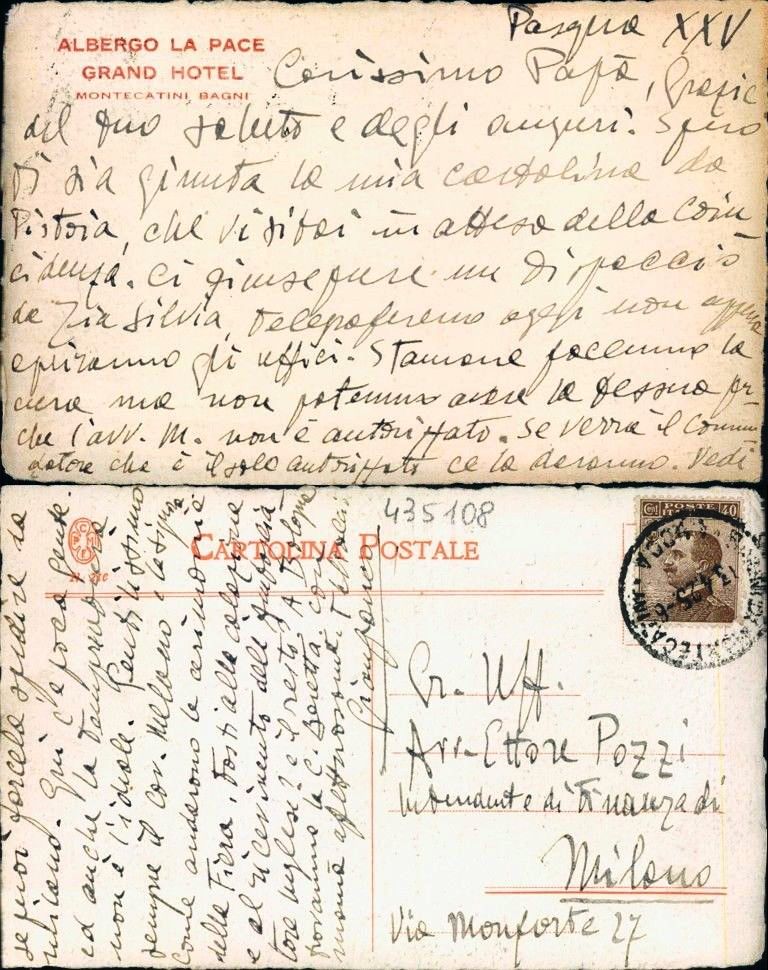 Pasqua XXV
ALBERGO LA PACE
GRAND HOTEL
MONTECATINI BAGNI
Carissimo Papà, Grazie
del tuo saluto e degli auguri. Spero
ti sia giunta la mia cartolina da
Pistoia, che visitai in attesa della coin
cidenza. Ci giunse pure un dispaccio
da Zia Silvia, telegraferemo oggi non appena
apriranno gli uffici. Stamane facemmo la
cura ma non potemmo avere la tessera per
che l'avv. M. non è autorizzato. Se verrà il Comm
datore che è il solo autorizzato ce la daranno. Vedi
se puoi farcela spedire da
Milano. Qui c'è poca gente
ed anche la temperatura
non è l'ideale. Gentilissimo
sempre il Cav. Melano e la sig.ra
Come andarono le cerimonie
della Fiera, fosti alla colazione
e al ricevimento dell'Ambascia
tore inglese? e il resto? A Bologna
la C. Beretta. con
mamma affettuosamente
Gianfranco
435108
CARTOLINA POSTALE
POSTE ITALIANE
Cent 40
13.4.25
Gr. Uff.
Avv. Ettore Pozzi
Intendente di Finanza di
Milano
Via Monforte 27